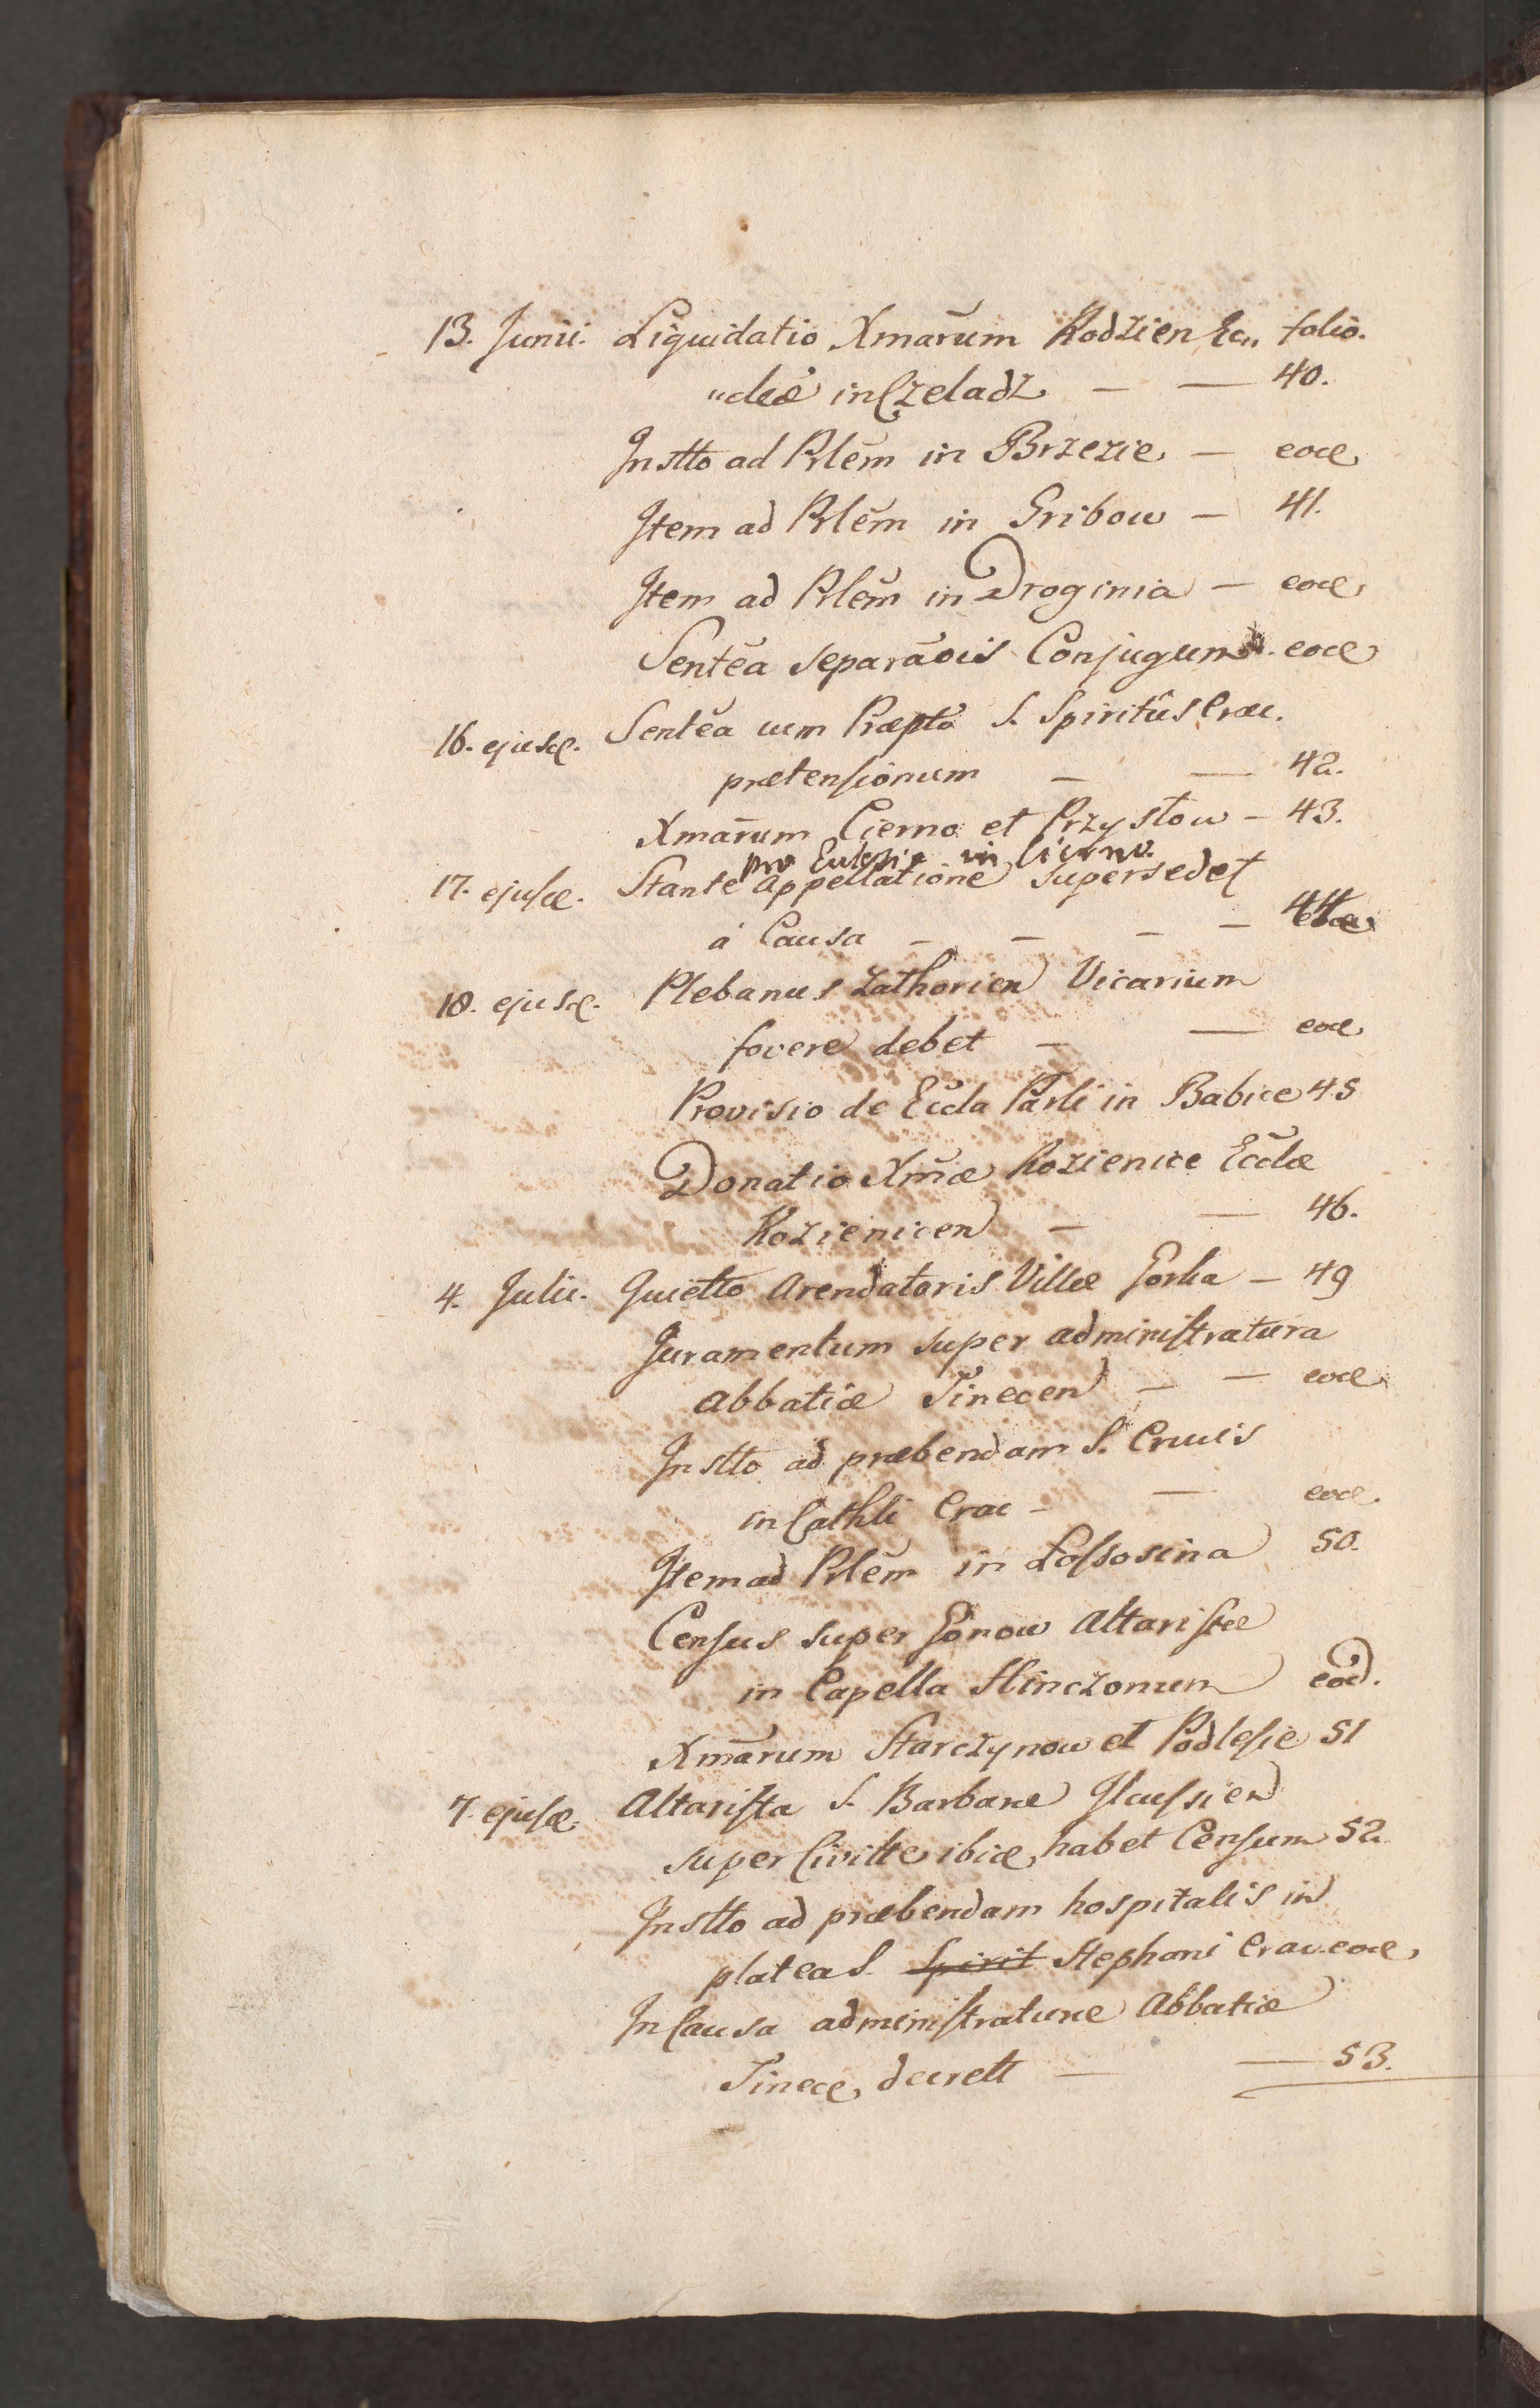 13. Junii. Liquidatio Xmarum Rodzien Ec„ folio.
„cleæ in Czeladz — — 40.
Instto ad Plem in Brzezie — eod
Item ad Plem in Gribow — 41.
Item ad Plem in Droginia — eod,
Sentea separaois Conjugum eod
16. ejusd. Sentea cum Præpto S. Spiritus Crac.
prætensionum — — 42.
Xmarum Cierno et Przystow — 43.
pro Eulesia in Cierno.
17. ejusd. Stante Appellatione supersedet
á Causa — — — — 44
18. ejusd. Plebanus Zathorien Vicarium
fovere debet — — eod,
Provisio de Eccla Parli in Babice 45
Donatio Xmæ Kozienice Ecclæ
Kozienicen — — 46.
4. Julii. Quietto Arendatoris Villæ Gorka — 49
Juramentum super administratura
Abbatiæ Tinecen — — eod
Instto ad præbendam S. Crucis
in Cathli Crac — — eod.
Item ad Plem in Lossosina 50.
Census super Gonow Altaristæ
in Capella Hinczonum eod.
Xmarum Starczynow et Podlesie 51
7. ejusd. Altarista S. Barbaræ Ilcussien
super Civitte ibid, habet Censum 52
Instto ad præbendam hospitalis in
platea S. Spirit Stephani Crac. eod,
In Causa administraturæ Abbatiæ
Tinec, decrett — — 53.